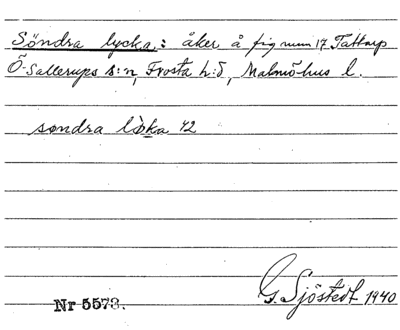 Söndra lycka: åker å fig num 17 Tattarp
Ö. Sallerups s:n, Frosta h:d, Malmöhus l.
søndra lòka 42
G. Sjöstedt 1940
Nr 5573.